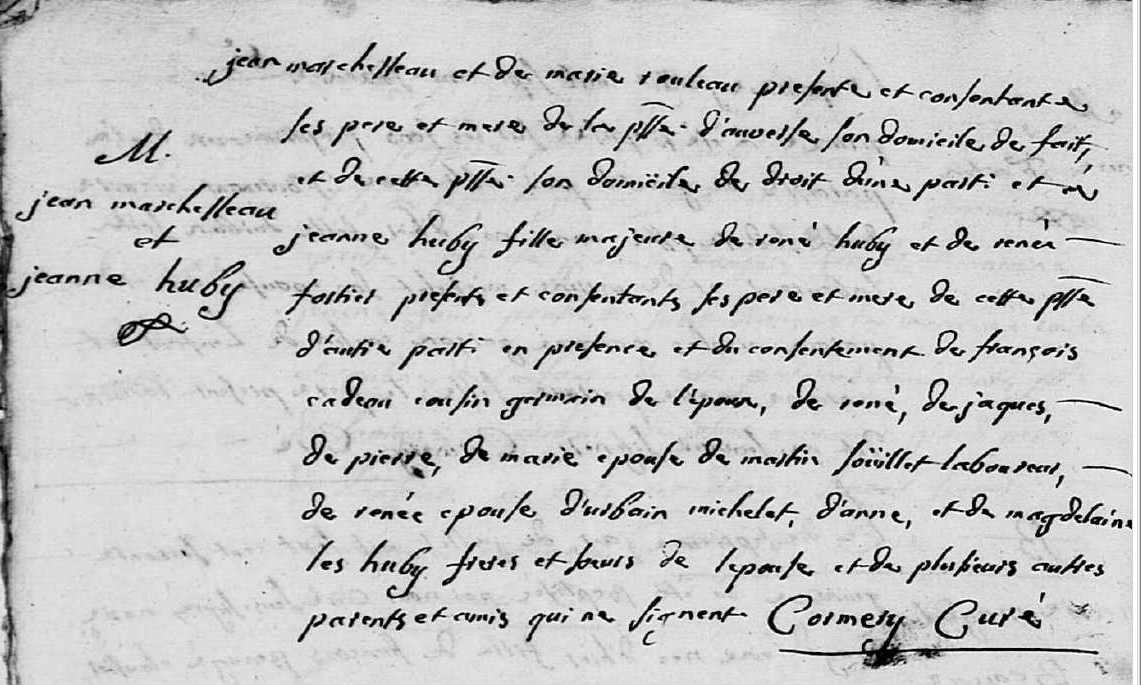 M.
jean marchesseau
et
jeanne huby
jean marchesseau et de marie rouleau presents et consentants
ses pere et mere de la psse d'auverse son domicile de fait,
et de cette psse son domicile de droit d'une parti et
jeanne huby fille majeure de rené huby et de renée
fortier presents et consentants ses pere et mere de cette psse
d'autre parti en presence et du consentement de françois
cadeau cousin germain de l'epoux, de rené, de jaques,
de pierre, de marie epouse de martin soüillet laboureur,
de renée epouse d'urbain michelet, d'anne, et de magdelaine
les huby freres et sœurs de lepouse et de plusieurs autres
parents et amis qui ne signent Cormery Curé